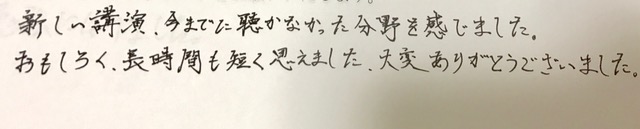 新しい講演、今までに聴かなかった分野を感じました。
おもしろく、長時間も短く思えました、大変ありがとうございました。